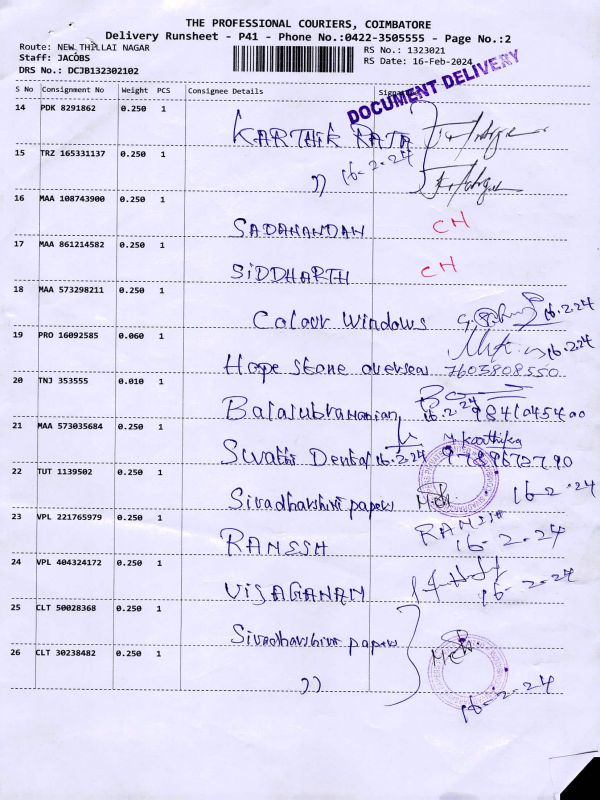 THE PROFESSIONAL COURIERS, COIMBATORE
Delivery Runsheet - P41 - Phone No.:0422-3505555 - Page No.:2
Route: NEW THILLAI NAGAR
RS No.: 1323021
Staff: JACOBS
RS Date: 16-Feb-2024
DRS No.: DCJB132302102
DOCUMENT DELIVERY
S No Consignment No Weight PCS Consignee Details
14 PDK 8291862 0.250 1 KARTHIK RAJA
15 TRZ 165331137 0.250 1 )) 16-2-24
16 MAA 108743900 0.250 1 SADANANDAN CH
17 MAA 861214582 0.250 1 SIDDHARTH CH
18 MAA 573298211 0.250 1 Colour Windows 16.2.24
19 PRO 16092585 0.060 1 Hope stone overseas 7603808550 16.2.24
20 TNJ 353555 0.010 1 Balasubramanian 16.2.24 9841045400
21 MAA 573035684 0.250 1 Swathi Dental 16.2.24 M. Karthika
22 TUT 1139502 0.250 1 Sivadharshini papers 16-2-24
23 VPL 221765979 0.250 1 RAMESH RAMESH 16-2-24
24 VPL 404324172 0.250 1 VISAGANAM 16-2-24
25 CLT 50028368 0.250 1 Sivadharshini papers
26 CLT 30238482 0.250 1 )) 16-2-24